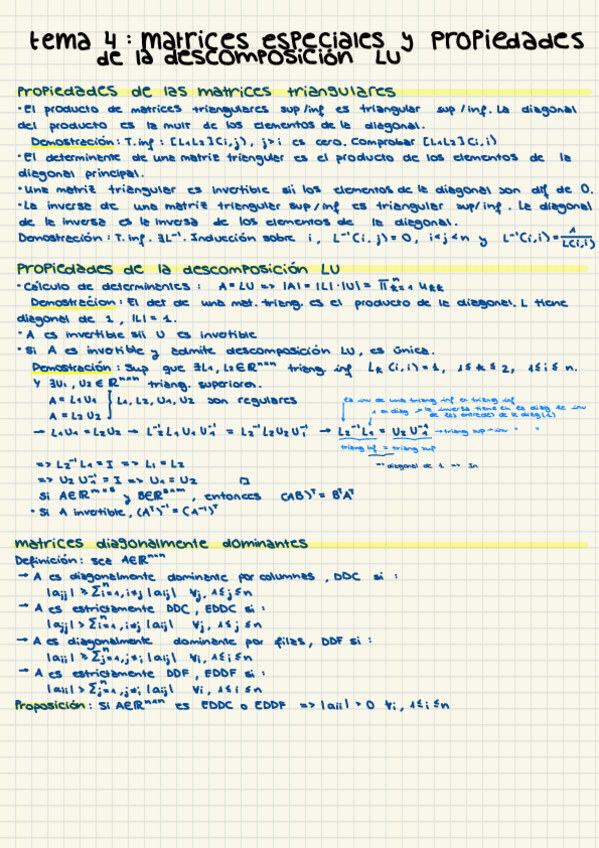 tema 4 : matrices especiales y propiedades
de la descomposición LU
Propiedades de las matrices triangulares
· El producto de matrices triangulares sup/inf es triangular sup/inf. La diagonal
del producto es la mult de los elementos de la diagonal.
Demostración : T.inf : [L₁L₂](i,j), j>i es cero. Comprobar [L₁L₂](i,i)
· El determinante de una matriz triangular es el producto de los elementos de la
diagonal principal.
· Una matriz triangular es invertible sii los elementos de la diagonal son dif de 0.
· La inversa de una matriz triangular sup/inf es triangular sup/inf. La diagonal
de la inversa es la inversa de los elementos de la diagonal.
Demostración : T.inf. ∃L⁻¹. Inducción sobre i, L⁻¹(i,j)=0, i<j<n y L⁻¹(i,i)=1/L(i,i)
Propiedades de la descomposición LU
· Cálculo de determinantes : A=LU => |A|=|L|·|U|= ∏ⁿₖ₌₁ uₖₖ
Demostración : El det de una mat. triang. es el producto de la diagonal. L tiene
diagonal de 1, |L|=1.
· A es invertible sii U es invertible
· Si A es invertible y admite descomposición LU, es única.
Demostración : Sup que ∃L₁, L₂∈ℝⁿˣⁿ triang. inf Lₖ(i,i)=1, 1≤k≤2, 1≤i≤n.
y ∃U₁, U₂∈ℝⁿˣⁿ triang. superiores.
A = L₁U₁
A = L₂U₂ } L₁, L₂, U₁, U₂ son regulares
→ L₁U₁ = L₂U₂ → L₂⁻¹L₁U₁U₁⁻¹ = L₂⁻¹L₂U₂U₁⁻¹ → L₂⁻¹L₁ = U₂U₁⁻¹ → triang sup - inv " "
es inv de una triang inf es triang inf
1 en diag → la inversa tiene en la diag la inv
de las entradas de la diag (1)
triang inf = triang sup
=> diagonal de 1 => In
=> L₂⁻¹L₁ = I => L₁ = L₂
=> U₂U₁⁻¹ = I => U₁ = U₂ □
Si A∈ℝᵐˣⁿ y B∈ℝⁿˣᵐ, entonces (AB)ᵀ = BᵀAᵀ
· Si A invertible, (Aᵀ)⁻¹ = (A⁻¹)ᵀ
matrices diagonalmente dominantes
Definición : sea A∈ℝⁿˣⁿ
→ A es diagonalmente dominante por columnas, DDC si :
|ajj| ≥ Σⁿi=1, i≠j |aij| ∀j, 1≤j≤n
→ A es estrictamente DDC, EDDC si :
|ajj| > Σⁿi=1, i≠j |aij| ∀j, 1≤j≤n
→ A es diagonalmente dominante por filas, DDF si :
|aii| ≥ Σⁿj=1, j≠i |aij| ∀i, 1≤i≤n
→ A es estrictamente DDF, EDDF si :
|aii| > Σⁿj=1, j≠i |aij| ∀i, 1≤i≤n
Proposición : Si A∈ℝⁿˣⁿ es EDDC o EDDF => |aii| > 0 ∀i, 1≤i≤n